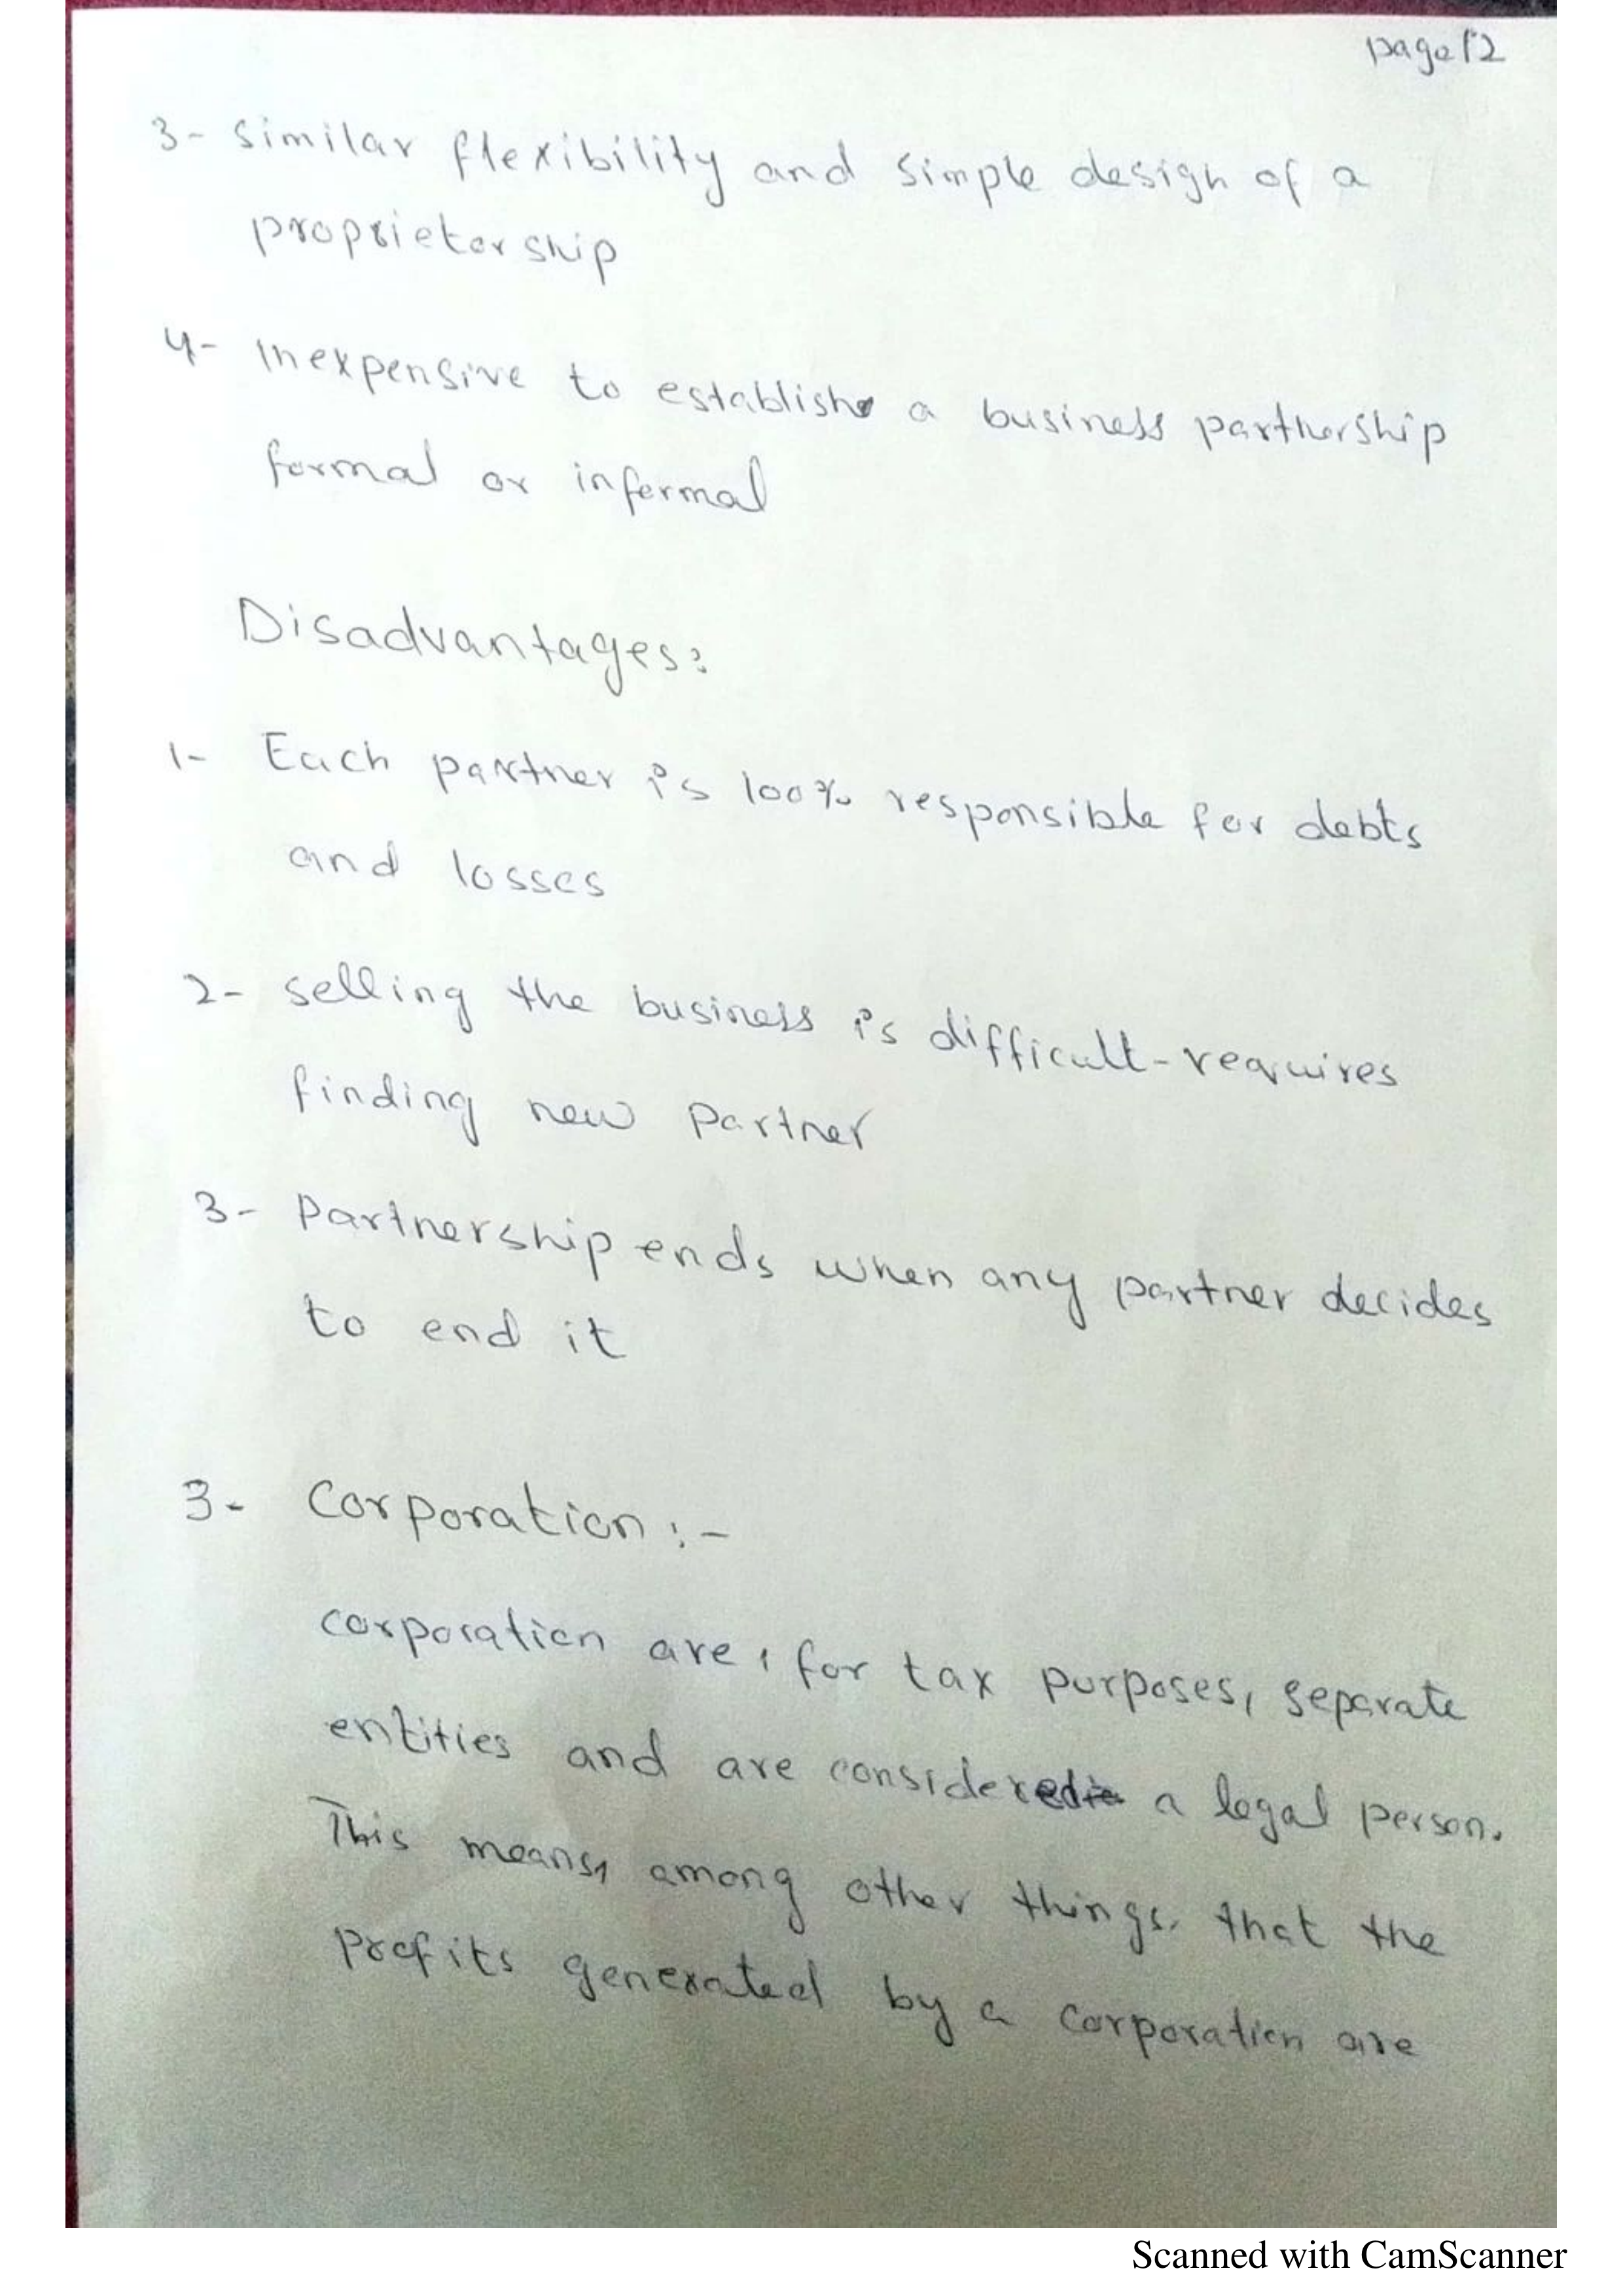 page 12
3- similar flexibility and simple design of a
proprietorship
4- Inexpensive to establish a business partnership
formal or informal
Disadvantages:
1- Each partner is 100% responsible for debts
and losses
2- selling the business is difficult-requires
finding new partner
3- Partnership ends when any partner decides
to end it
3- Corporation :-
corporation are, for tax purposes, separate
entities and are considered a legal person.
This means, among other things, that the
profits generated by a corporation are
Scanned with CamScanner